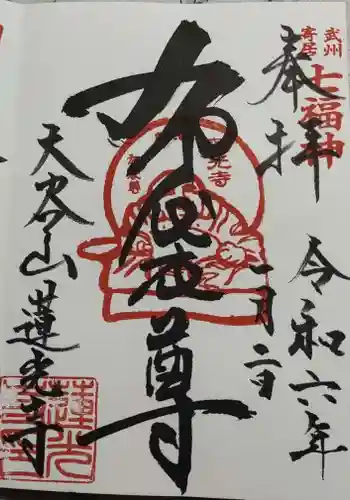 武州
寄居
七福神
奉拝
令和六年
一月二日
布袋尊
光寺
天谷山
蓮光寺
蓮光